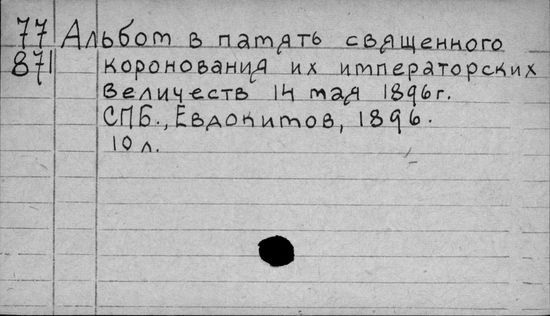 77 Альбом в память священного
871 коронования их императорских
Величеств 14 мая 1896г.
СПБ., Евдокимов, 1896.
10 л.